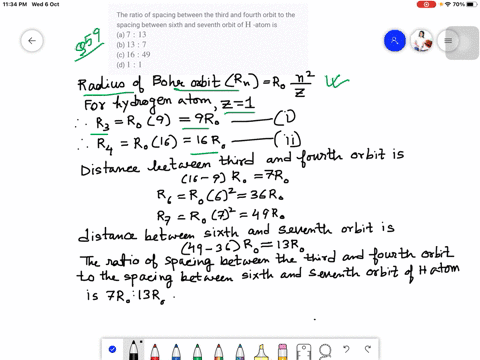 11:34 PM Wed 6 Oct
70%
The ratio of spacing between the third and fourth orbit to the
spacing between sixth and seventh orbit of H -atom is
(a) 7 : 13
(b) 13 : 7
(c) 16 : 49
(d) 1 : 1
359
Radius of Bohr orbit (Rn) = R₀ n²/Z
For hydrogen atom, Z=1
∴ R₃ = R₀ (9) = 9R₀ —— (i)
∴ R₄ = R₀ (16) = 16 R₀ —— (ii)
Distance between third and fourth orbit is
(16-9) R₀ = 7R₀
R₆ = R₀ (6)² = 36 R₀
R₇ = R₀ (7)² = 49 R₀
distance between sixth and seventh orbit is
(49-36) R₀ = 13R₀
The ratio of spacing between the third and fourth orbit
to the spacing between sixth and seventh orbit of H atom
is 7R₀:13R₀ .